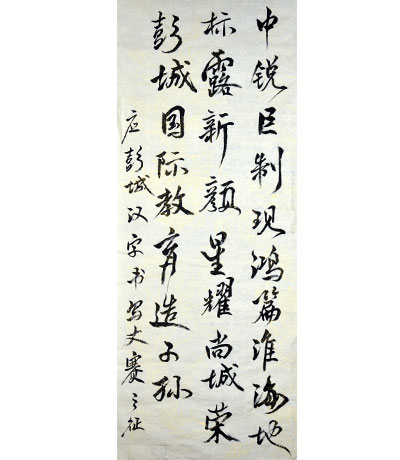 中锐巨制现鸿篇淮海地
标露新颜星耀尚城荣
彭城国际教育造子孙
应彭城汉字书写大赛之征